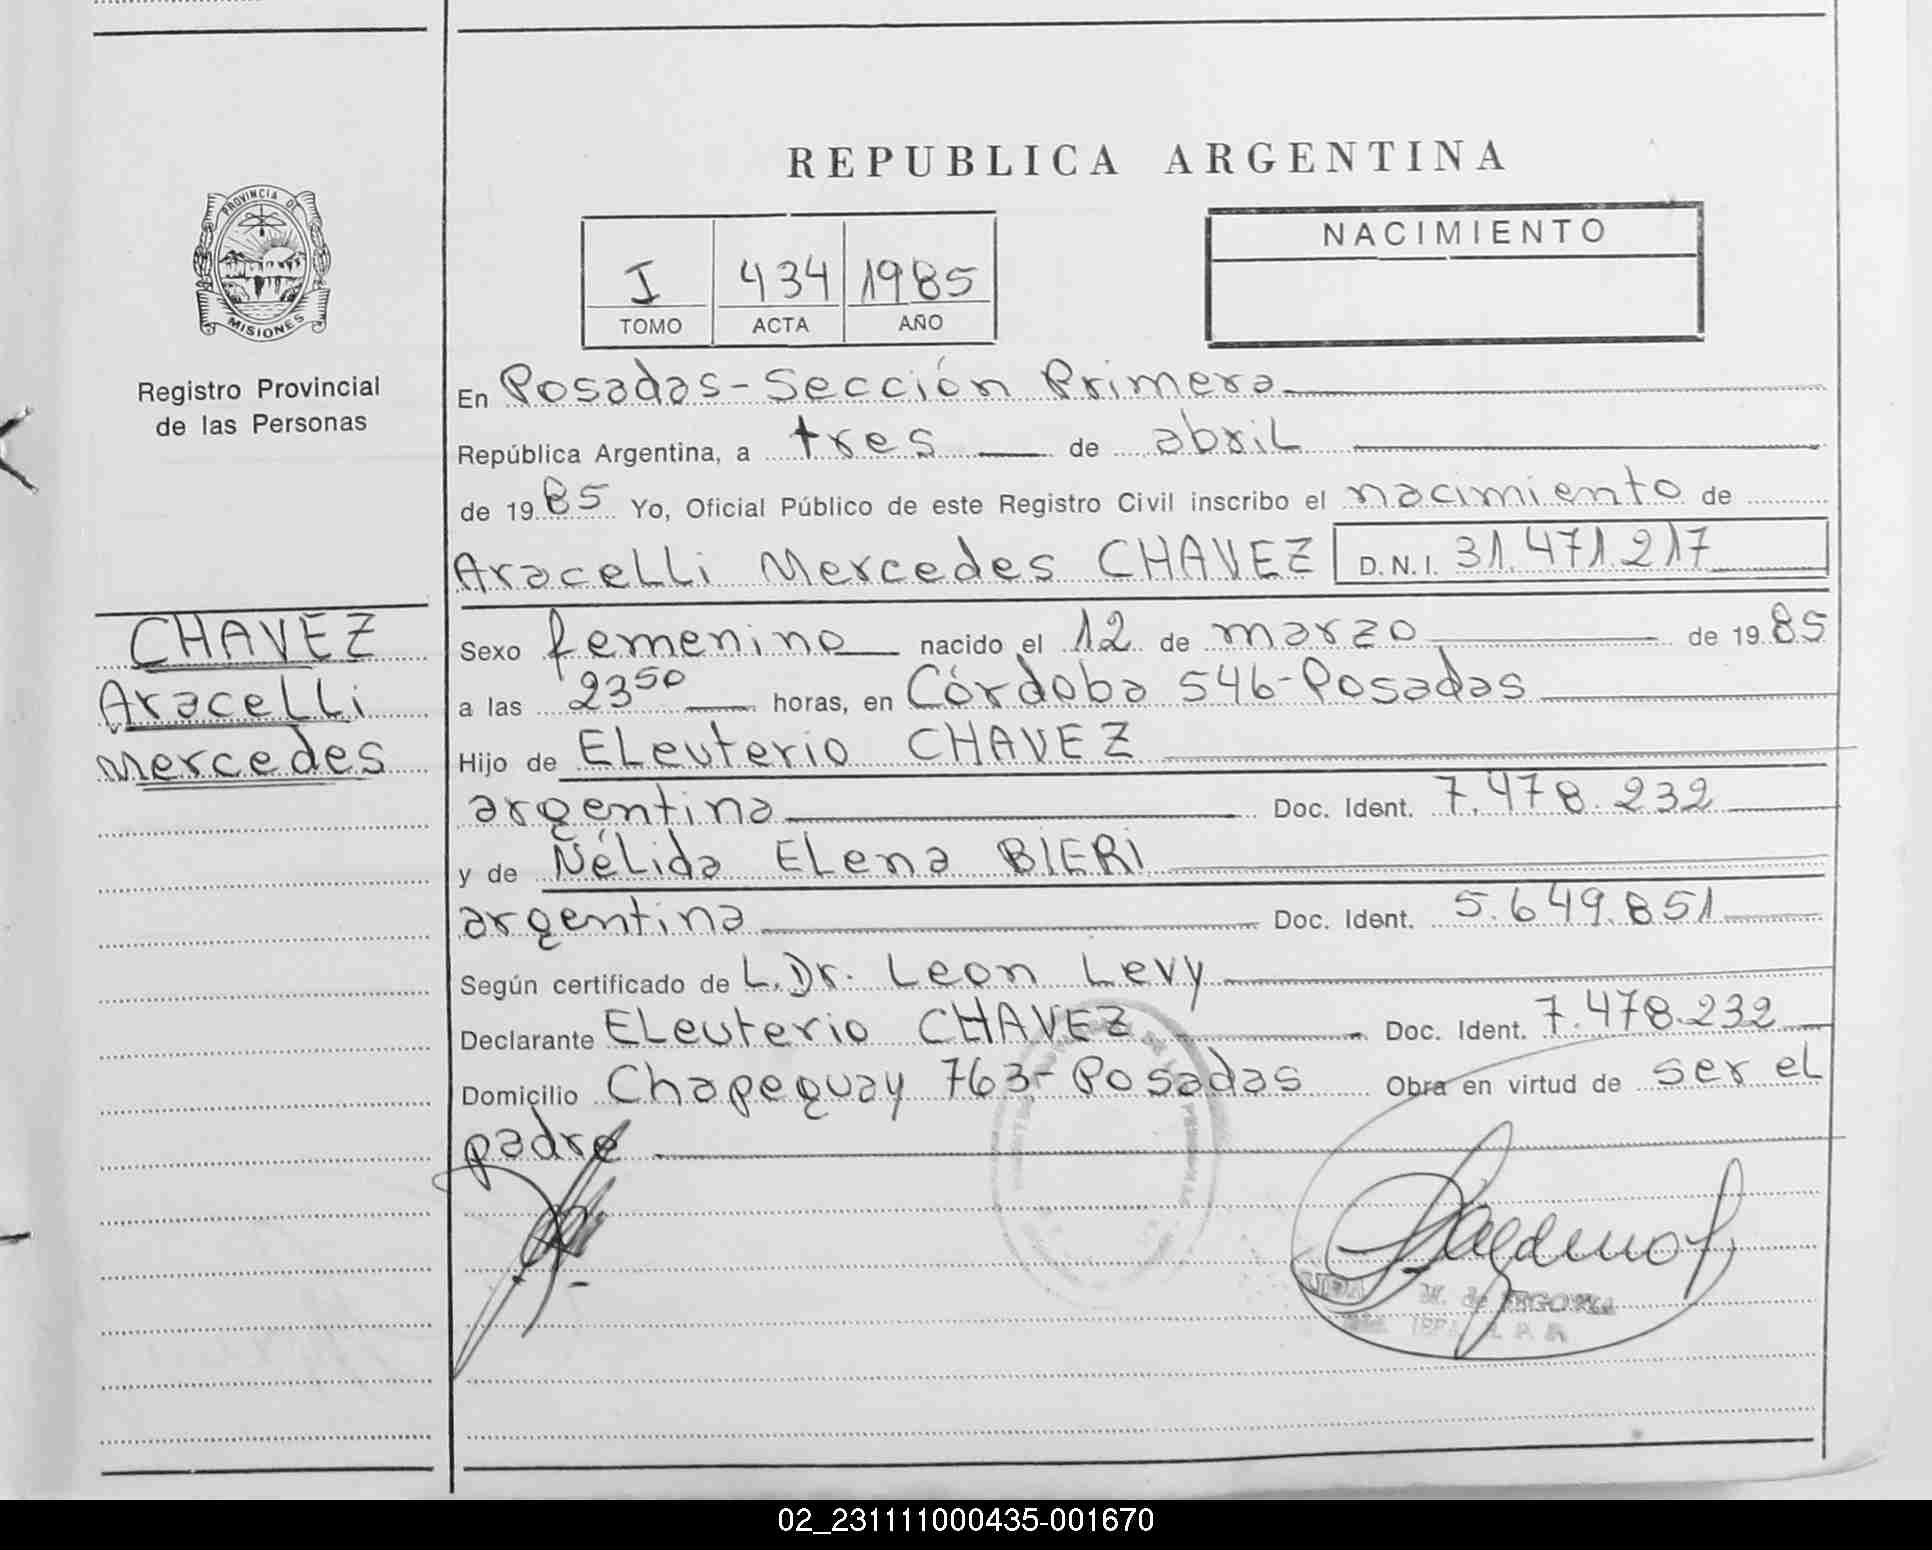 REPUBLICA ARGENTINA
PROVINCIA DE
MISIONES
Registro Provincial
de las Personas
I 434 1985
TOMO ACTA AÑO
NACIMIENTO
En Posadas-Sección Primera
República Argentina, a tres de abril
de 1985 Yo, Oficial Público de este Registro Civil inscribo el nacimiento de
Aracelli Mercedes CHAVEZ D.N.I. 31.471.217
CHAVEZ
Aracelli
Mercedes
Sexo femenino nacido el 12 de marzo de 1985
a las 23 50 horas, en Córdoba 546-Posadas
Hijo de Eleuterio CHAVEZ
argentina Doc. Ident. 7.478.232
y de Nélida Elena BIERI
argentina Doc. Ident. 5.649.851
Según certificado de L.Dr. Leon Levy
Declarante Eleuterio CHAVEZ Doc. Ident. 7.478.232
Domicilio Chapequay 763-Posadas Obra en virtud de ser el
padre
M. de SEGOVIA
02_231111000435-001670